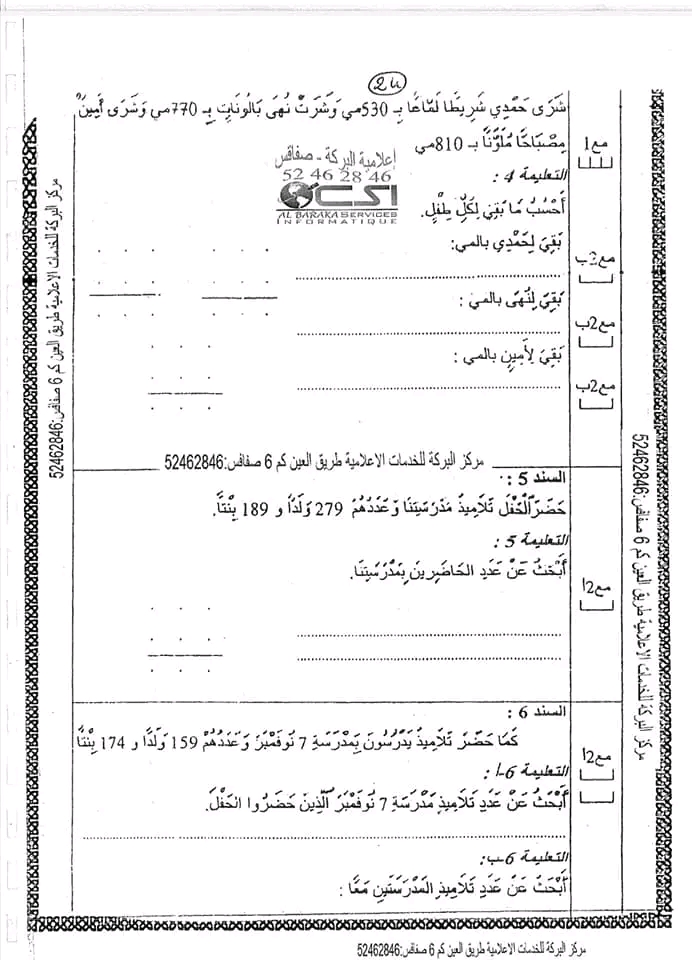 24
شَرَى حَمْدِي شَرِيطًا لَمَّاعًا بِـ 530مي وَشَرَتْ نُهَى بَالُونَاتٍ بِـ 770مي وَشَرَى أَمِينٌ
مِصْبَاحًا مُلَوَّنًا بـ 810مي
مع1
إعلامية البركة - صفاقس
52 46 28 46
CSI
AL BARAKA SERVICES
INFORMATIQUE
التعليمة 4 :
أَحْسُبُ مَا بَقِيَ لِكُلِّ طِفْلٍ.
بَقِيَ لِحَمْدِي بالمي:
مع2ب
بَقِيَ لِنُهَى بالمي :
مع2ب
بَقِيَ لِأَمِينٍ بالمي :
مع2ب
مركز البركة للخدمات الاعلامية طريق العين كم 6 صفاقس:52462846
السند 5 :
حَضَرَ الْحَفْلَ تَلَامِيذُ مَدْرَسَتِنَا وَعَدَدُهُمْ 279 وَلَدًا و 189 بِنْتًا.
التعليمة 5 :
أَبْحَثُ عَنْ عَدَدِ الحَاضِرِينَ بِمَدْرَسَتِنَا.
مع2أ
السند 6 :
كَمَا حَضَرَ تَلَامِيذُ يَدْرُسُونَ بِمَدْرَسَةِ 7 نُوفَمْبَرَ وَعَدَدُهُمْ 159 وَلَدًا و 174 بِنْتًا
مع2أ
التعليمة 6-أ :
أَبْحَثُ عَنْ عَدَدِ تَلَامِيذِ مَدْرَسَةِ 7 نُوفَمْبَرَ الَّذِينَ حَضَرُوا الحَفْلَ.
التعليمة 6-ب:
أَبْحَثُ عَنْ عَدَدِ تَلَامِيذِ المَدْرَسَتَيْنِ مَعًا :
مركز البركة للخدمات الاعلامية طريق العين كم 6 صفاقس:52462846
مركز البركة للخدمات الاعلامية طريق العين كم 6 صفاقس:52462846
مركز البركة للخدمات الاعلامية طريق العين كم 6 صفاقس:52462846